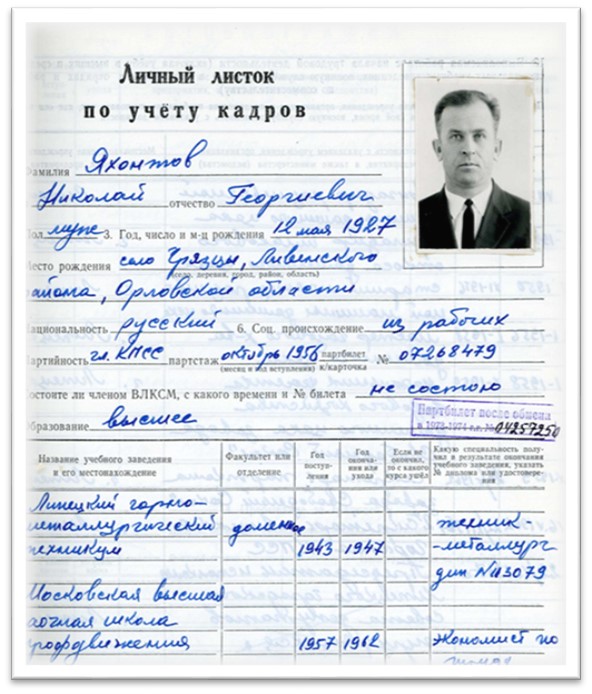 Личный листок
по учёту кадров
амилия Яхонтов
Николай отчество Георгиевич
ол муж 3. Год, число и м-ц рождения 12 мая 1927
есто рождения село Грязцы, Ливенского
(село, деревня, город, район, область)
айона, Орловской области
ациональность русский 6. Соц. происхождение из рабочих
артийность чл. КПСС партстаж октябрь 1956 партбилет № 07268479
(месяц и год вступления) к/карточка
остоите ли членом ВЛКСМ, с какого времени и № билета не состою
Партбилет после обмена
в 1973-1974 г.г. № 04257250
бразование высшее
Название учебного заведения и его местонахождение
Факультет или отделение
Год поступ-ления
Год оконча-ния или ухода
Если не окончил, то с какого курса ушёл
Какую специальность полу-чил в результате окончания учебного заведения, указать № диплома или удостовере-ния
Липецкий горно-
металлургический доменное техник-
ехникум 1943 1947 -металлург
дип №113079
Московская высшая
аочная школа
рофдвижения 1957 1962 Экономист по